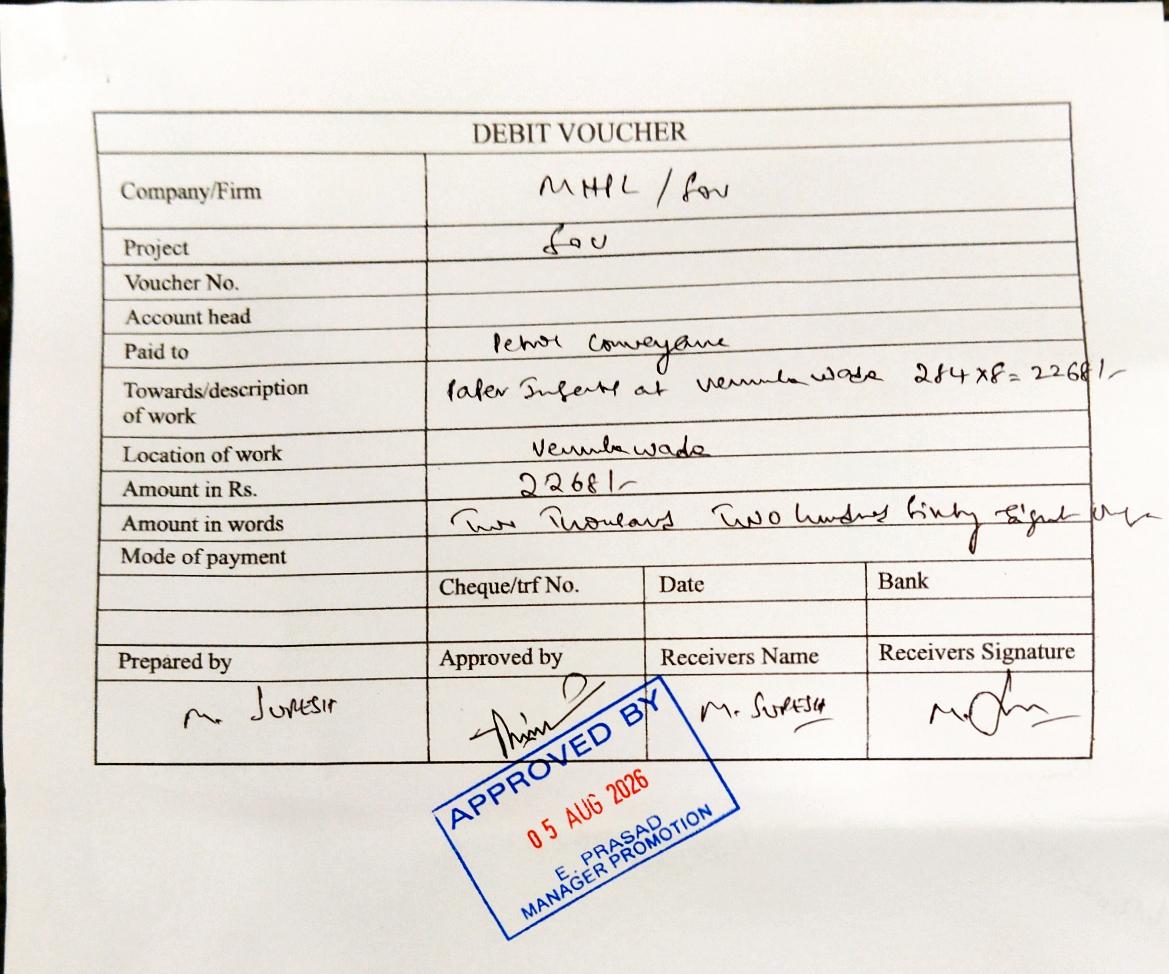 DEBIT VOUCHER
Company/Firm MHPL / Sov
Project Sov
Voucher No.
Account head
Paid to Petrol Conveyance
Towards/description of work Paper Inserts at Vemulawada 284 x 8 = 2268/-
Location of work Vemulawada
Amount in Rs. 2268/-
Amount in words Two Thousand Two hundred Sixty Eight
Mode of payment
Cheque/trf No. Date Bank
Prepared by Approved by Receivers Name Receivers Signature
M. SURESH M. SURESH
APPROVED BY
05 AUG 2026
E. PRASAD
MANAGER PROMOTION